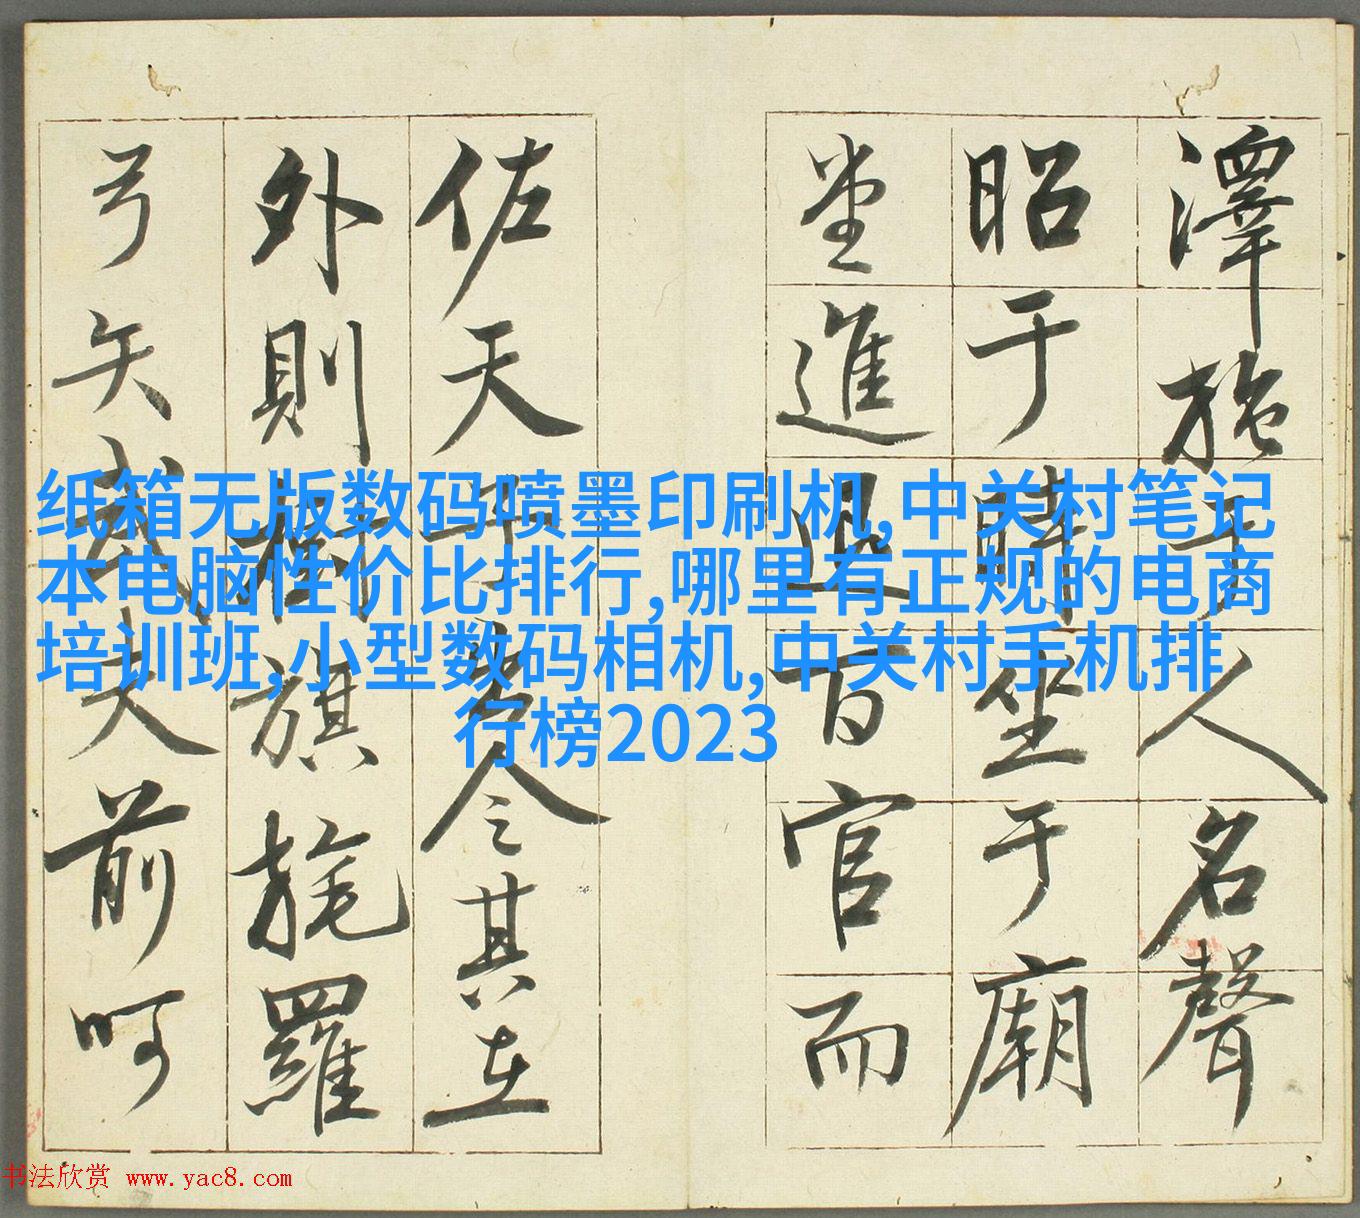 澤施于人名聲
昭于時坐于廟
堂進退百官而
佐天子出令其在
外則樹旗旄羅
弓矢武夫前呵
纸箱无版数码喷墨印刷机,中关村笔记
本电脑性价比排行,哪里有正规的电商
培训班,小型数码相机,中关村手机排
行榜2023
书法欣赏 www.yac8.com